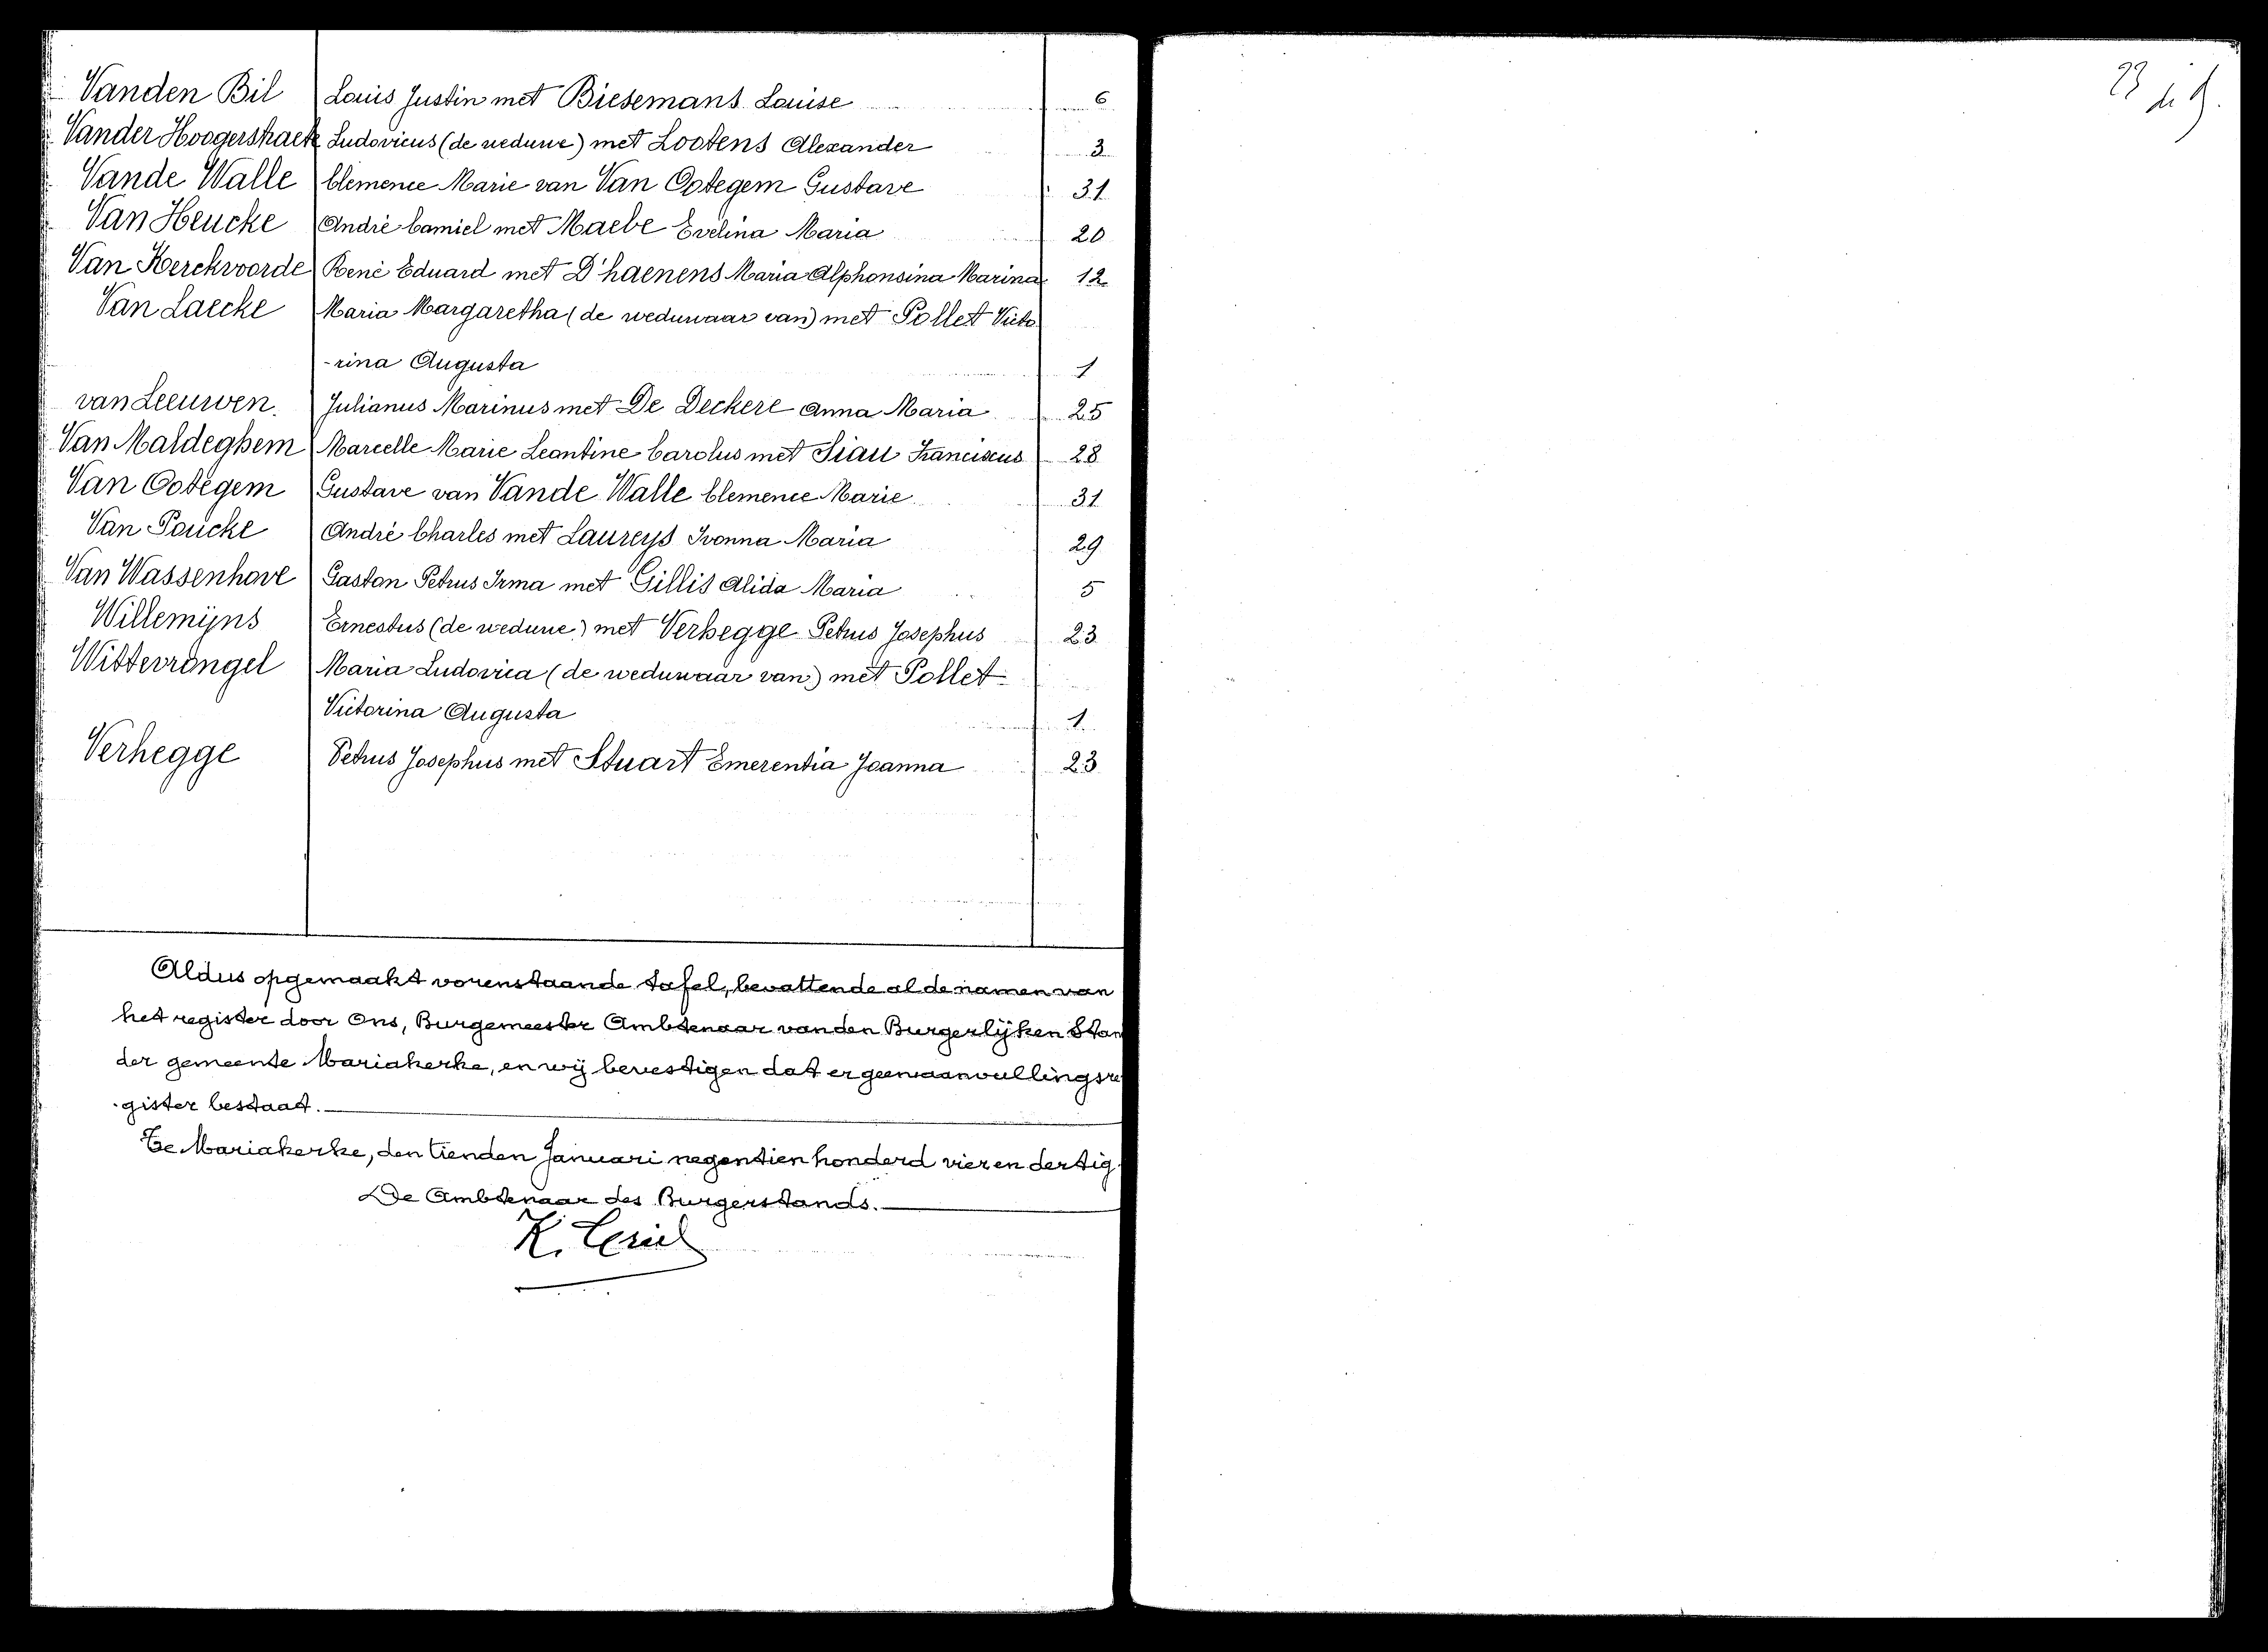 Vanden Bil Louis Justin met Biesemans Louise 6
Vander Hoogerstraete Ludovicus (de weduwe) met Lootens Alexander 3
Vande Walle Clemence Marie van Van Ootegem Gustave 31
Van Heucke André Camiel met Maebe Evelina Maria 20
Van Kerckvoorde René Eduard met D'haenens Maria Alphonsina Marina 12
Van Laecke Maria Margaretha (de weduwaar van) met Pollet Victo
-rina Augusta 1
van Leeuwen. Julianus Marinus met De Deckere Anna Maria 25
Van Maldeghem Marcelle Marie Leontine Carolus met Siau Franciscus 28
Van Ootegem Gustave van Vande Walle Clemence Marie 31
Van Poucke André Charles met Laureys Ivonna Maria 29
Van Wassenhove Gaston Petrus Irma met Gillis Alida Maria 5
Willemijns Ernestus (de weduwe) met Verhegge Petrus Josephus 23
Wittevrongel Maria Ludovica (de weduwaar van) met Pollet
Victorina Augusta 1
Verhegge Petrus Josephus met Stuart Emerentia Joanna 23
Aldus opgemaakt vorenstaande tafel, bevattende al de namen van
het register door Ons, Burgemeester Ambtenaar van den Burgerlijken Stan
der gemeente Mariakerke, en wij bevestigen dat er geen aanvullingsre
-gister bestaat.
Te Mariakerke, den tienden Januari negentien honderd vier en dertig
De Ambtenaar des Burgerstands.
K.
23